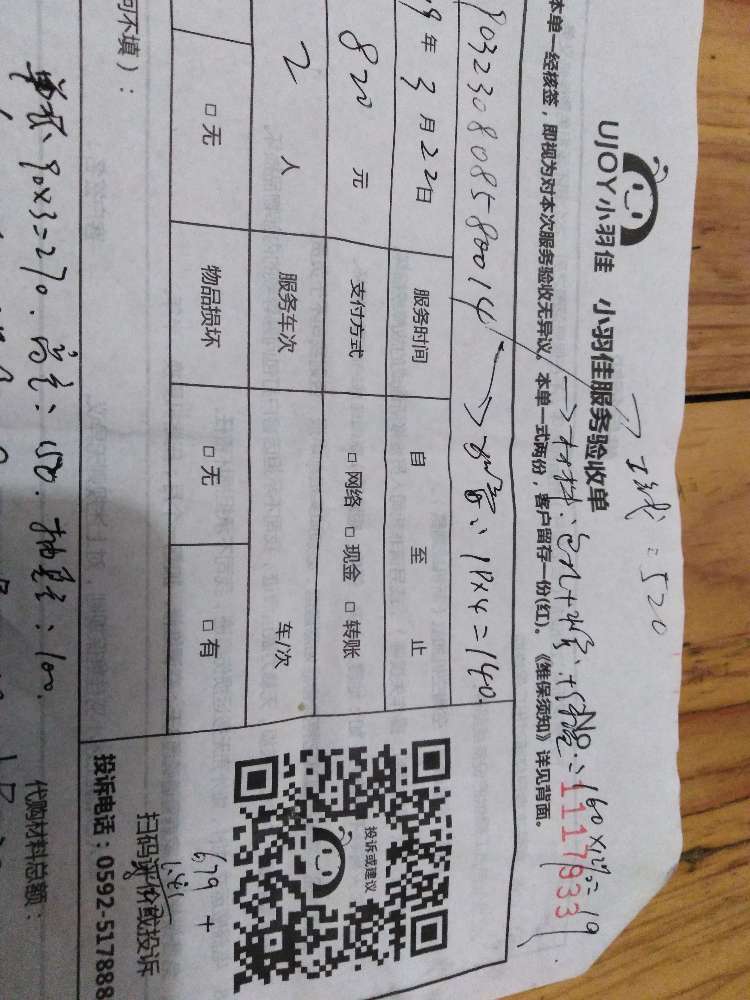 →工钱:520
UJOY小羽佳 小羽佳服务验收单
No: 1117933
160×12%=19
本单一经核签，即视为对本次服务验收无异议。本单一式两份，客户留存一份(红)。《维保须知》详见背面。
903230808580014
9年3月22日 服务时间 自 至 止
820元 支付方式 □网络 □现金 □转账
2人 服务车次 车/次
□无 物品损坏 □无 □有
投诉或建议
679+
扫码评价或投诉
投诉电话：0592-517888
可不填）：
90×3=270.
150.
100.
代购材料总额：